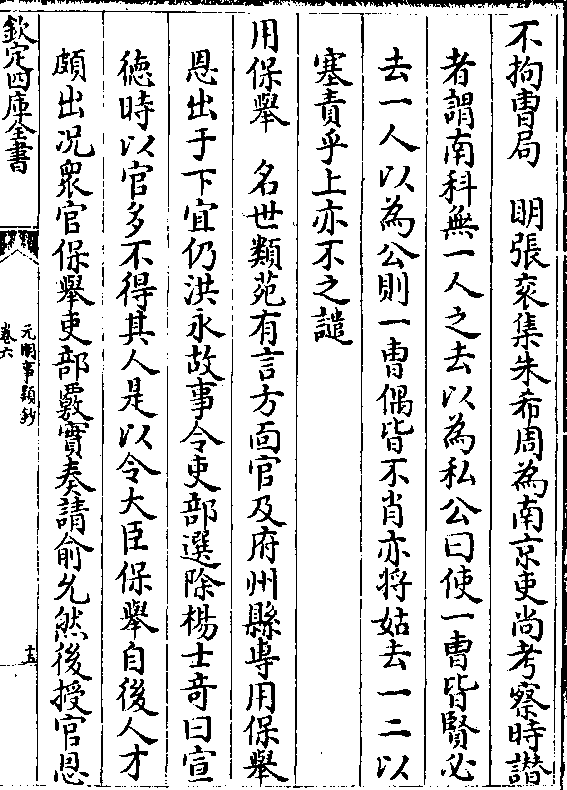 不拘曹局　明張衮集朱希周為南京吏尚考察時譛
者謂南科無一人之去以為私公曰使一曹皆賢必
去一人以為公則一曹偶皆不肖亦将姑去一二以
塞責乎上亦不之譴
用保舉　名世類苑有言方面官及府州縣專用保舉
恩出于下宜仍洪永故事令吏部選除楊士竒曰宣
徳時以官多不得其人是以令大臣保舉自後人才
頗出况衆官保舉吏部覈實奏請俞允然後授官恩
欽定四庫全書
元明事類鈔
卷六
十五